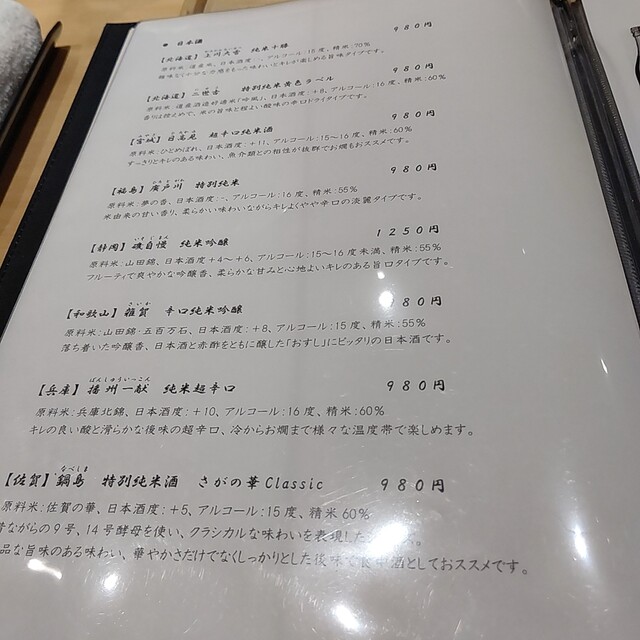 ● 日本酒
980円
【北海道】 上川大雪 純米十勝
原料米:道産米、日本酒度:-、アルコール:15度、精米:70%
980円
【北海道】 二世古 特別純米黄色ラベル
原料米:道産酒造好適米「吟風」、日本酒度:+8、アルコール:16度、精米:60%
香りは控えめで、米の旨味と程よい酸味の辛口ドライタイプです。
980円
【宮城】 日高見 超辛口純米酒
原料米:ひとめぼれ、日本酒度:+11、アルコール:15〜16度、精米:60%
すっきりとキレのある味わい、魚介類との相性が抜群でお燗もおススメです。
980円
ひろとがわ
【福島】 廣戸川 特別純米
原料米:夢の香、日本酒度:-、アルコール:16度、精米:55%
米由来の甘い香り、柔らかい味わいながらキレよくやや辛口の淡麗タイプです。
1250円
いそじまん
【静岡】 磯自慢 純米吟醸
原料米:山田錦、日本酒度+4〜+6、アルコール:15〜16度未満、精米:55%
フルーティで爽やかな吟醸香、柔らかな甘みと心地よいキレのある旨口タイプです。
980円
さいか
【和歌山】 雑賀 辛口純米吟醸
原料米:山田錦・五百万石、日本酒度:+8、アルコール:15度、精米:55%
落ち着いた吟醸香、日本酒と赤酢をともに醸した「おすし」にピッタリの日本酒です。
ばんしゅういっこん
【兵庫】 播州一献 純米超辛口 980円
原料米:兵庫北錦、日本酒度:+10、アルコール:16度、精米:60%
キレの良い酸と滑らかな後味の超辛口、冷からお燗まで様々な温度帯で楽しめます。
なべしま
【佐賀】 鍋島 特別純米酒 さがの華Classic 980円
原料米:佐賀の華、日本酒度:+5、アルコール:15度、精米60%
昔ながらの9号、14号酵母を使い、クラシカルな味わいを表現した
品な旨味のある味わい、華やかさだけでなくしっかりとした後味で食中酒としておススメです。